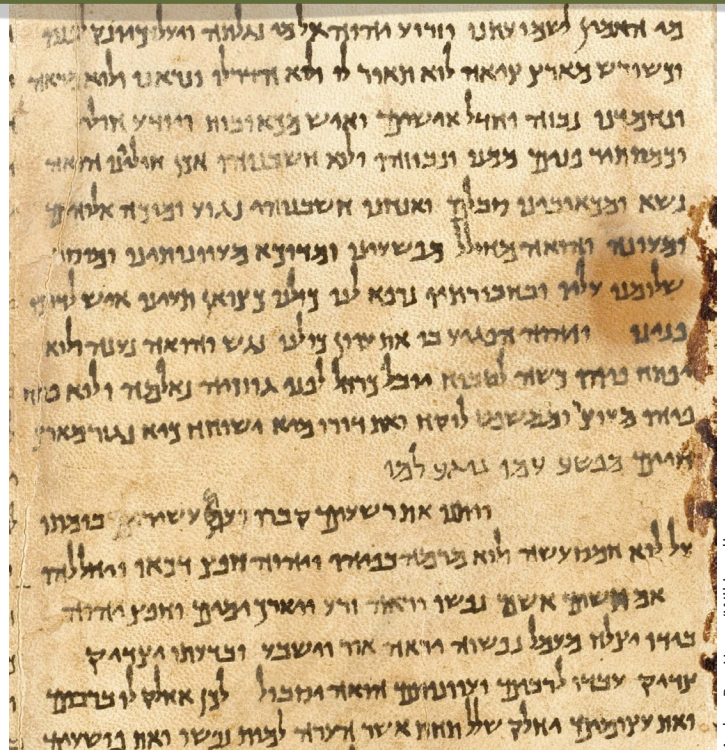 מי האמין לשמועתנו וזרוע יהוה אל מי נגלתה ויעל כיונק לפניו
וכשורש מארץ ציאה לוא תאור לו ולוא הדר לו ונראנו ולוא מראה
ונחמדנו נבזה וחדל אישים ואיש מכאובות ויודע חולי
וכמסתיר פנים ממנו ונבוזהו ולוא חשבנוהו אכן חוליינו הואה
נשא ומכאובינו סבלם ואנחנו חשבנוהו נגוע ומוכה אלוהים
ומעונה והואה מחולל מפשעינו ומדוכא מעוונותינו ומוסר
שלומנו עליו ובחבורתיו נרפא לנו כולנו כצואן תעינו איש לדרכו
פנינו ויהוה הפגיע בו את עוון כולנו נגש והואה נענה ולוא
יפתח פיהו כשה לטבוח יובל כרחל לפני גוזזיה נאלמה ולוא פתח
פיהו מעוצר וממשפט לוקח ואת דורו מיא ישוחח כיא נגזר מארץ
חיים מפשע עמו נוגע למו
ויתנו את רשעים קברו ועם עשירים בומתו
על לוא חמס עשה ולוא מרמה בפיהו ויהוה חפץ דכאו ויחללהו
אם תשים אשם נפשו יראה זרע ויארך ימים וחפץ יהוה
בידו יצלח מעמל נפשוה יראה אור וישבע ובדעתו יצדיק
צדיק עבדו לרבים ועוונותם הואה יסבול לכן אחלק לו ברבים
ואת עצומים יחלק שלל תחת אשר הערה למות נפשו ואת פושעים